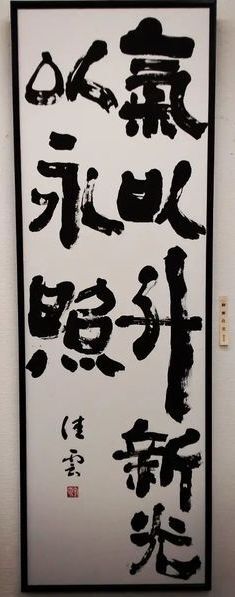 氣以升新光
以永照
佳雲